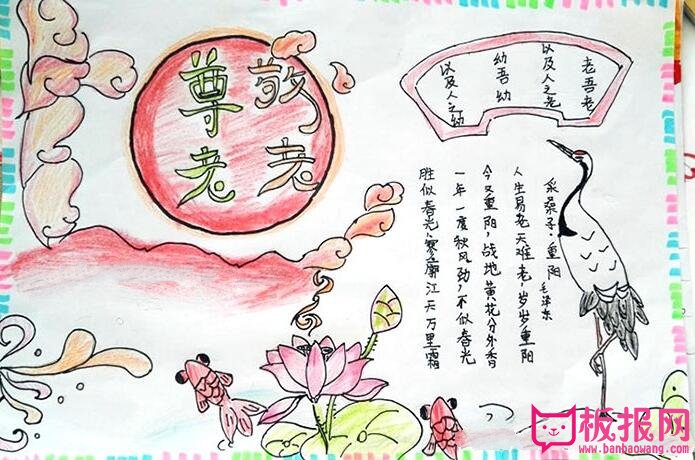 敬老
尊老
老吾老
以及人之老
幼吾幼
以及人之幼
采桑子·重阳
毛泽东
人生易老天难老,岁岁重阳
今又重阳,战地黄花分外香
一年一度秋风劲,不似春光
胜似春光,寥廓江天万里霜
板报网
www.banbaowang.com